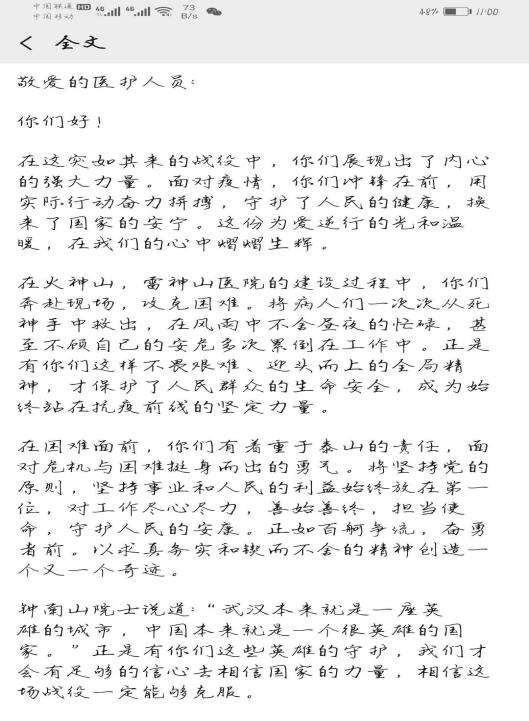 中国联通 HD 4G 4G 73 B/s 48% 11:00
中国移动
< 全文
敬爱的医护人员：
你们好！
在这突如其来的战役中，你们展现出了内心
的强大力量。面对疫情，你们冲锋在前，用
实际行动奋力拼搏，守护了人民的健康，换
来了国家的安宁。这份为爱逆行的光和温
暖，在我们的心中熠熠生辉。
在火神山，雷神山医院的建设过程中，你们
奔赴现场，攻克困难。将病人们一次次从死
神手中救出，在风雨中不舍昼夜的忙碌，甚
至不顾自己的安危多次累倒在工作中。正是
有你们这样不畏艰难、迎头而上的全局精
神，才保护了人民群众的生命安全，成为始
终站在抗疫前线的坚定力量。
在困难面前，你们有着重于泰山的责任，面
对危机与困难挺身而出的勇气。将坚持党的
原则，坚持事业和人民的利益始终放在第一
位，对工作尽心尽力，善始善终，担当使
命，守护人民的安康。正如百舸争流，奋勇
者前。以求真务实和锲而不舍的精神创造一
个又一个奇迹。
钟南山院士说道：“武汉本来就是一座英
雄的城市，中国本来就是一个很英雄的国
家。”正是有你们这些英雄的守护，我们才
会有足够的信心去相信国家的力量，相信这
场战役一定能够克服。